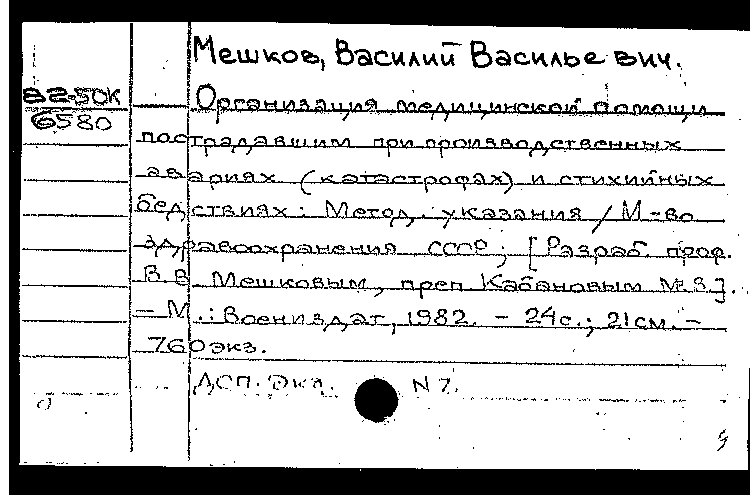 Мешков, Василий Васильевич.
82-50К
6580
Организация медицинской помощи
пострадавшим при производственных
авариях (катастрофах) и стихийных
бедствиях: Метод. указания / М-во
здравоохранения СССР; [Разраб. проф.
В.В. Мешковым, преп Кабановым М.В.].
– М.: Воениздат, 1982. – 24с.; 21см. –
760экз.
ДСП. Экз. N 7.